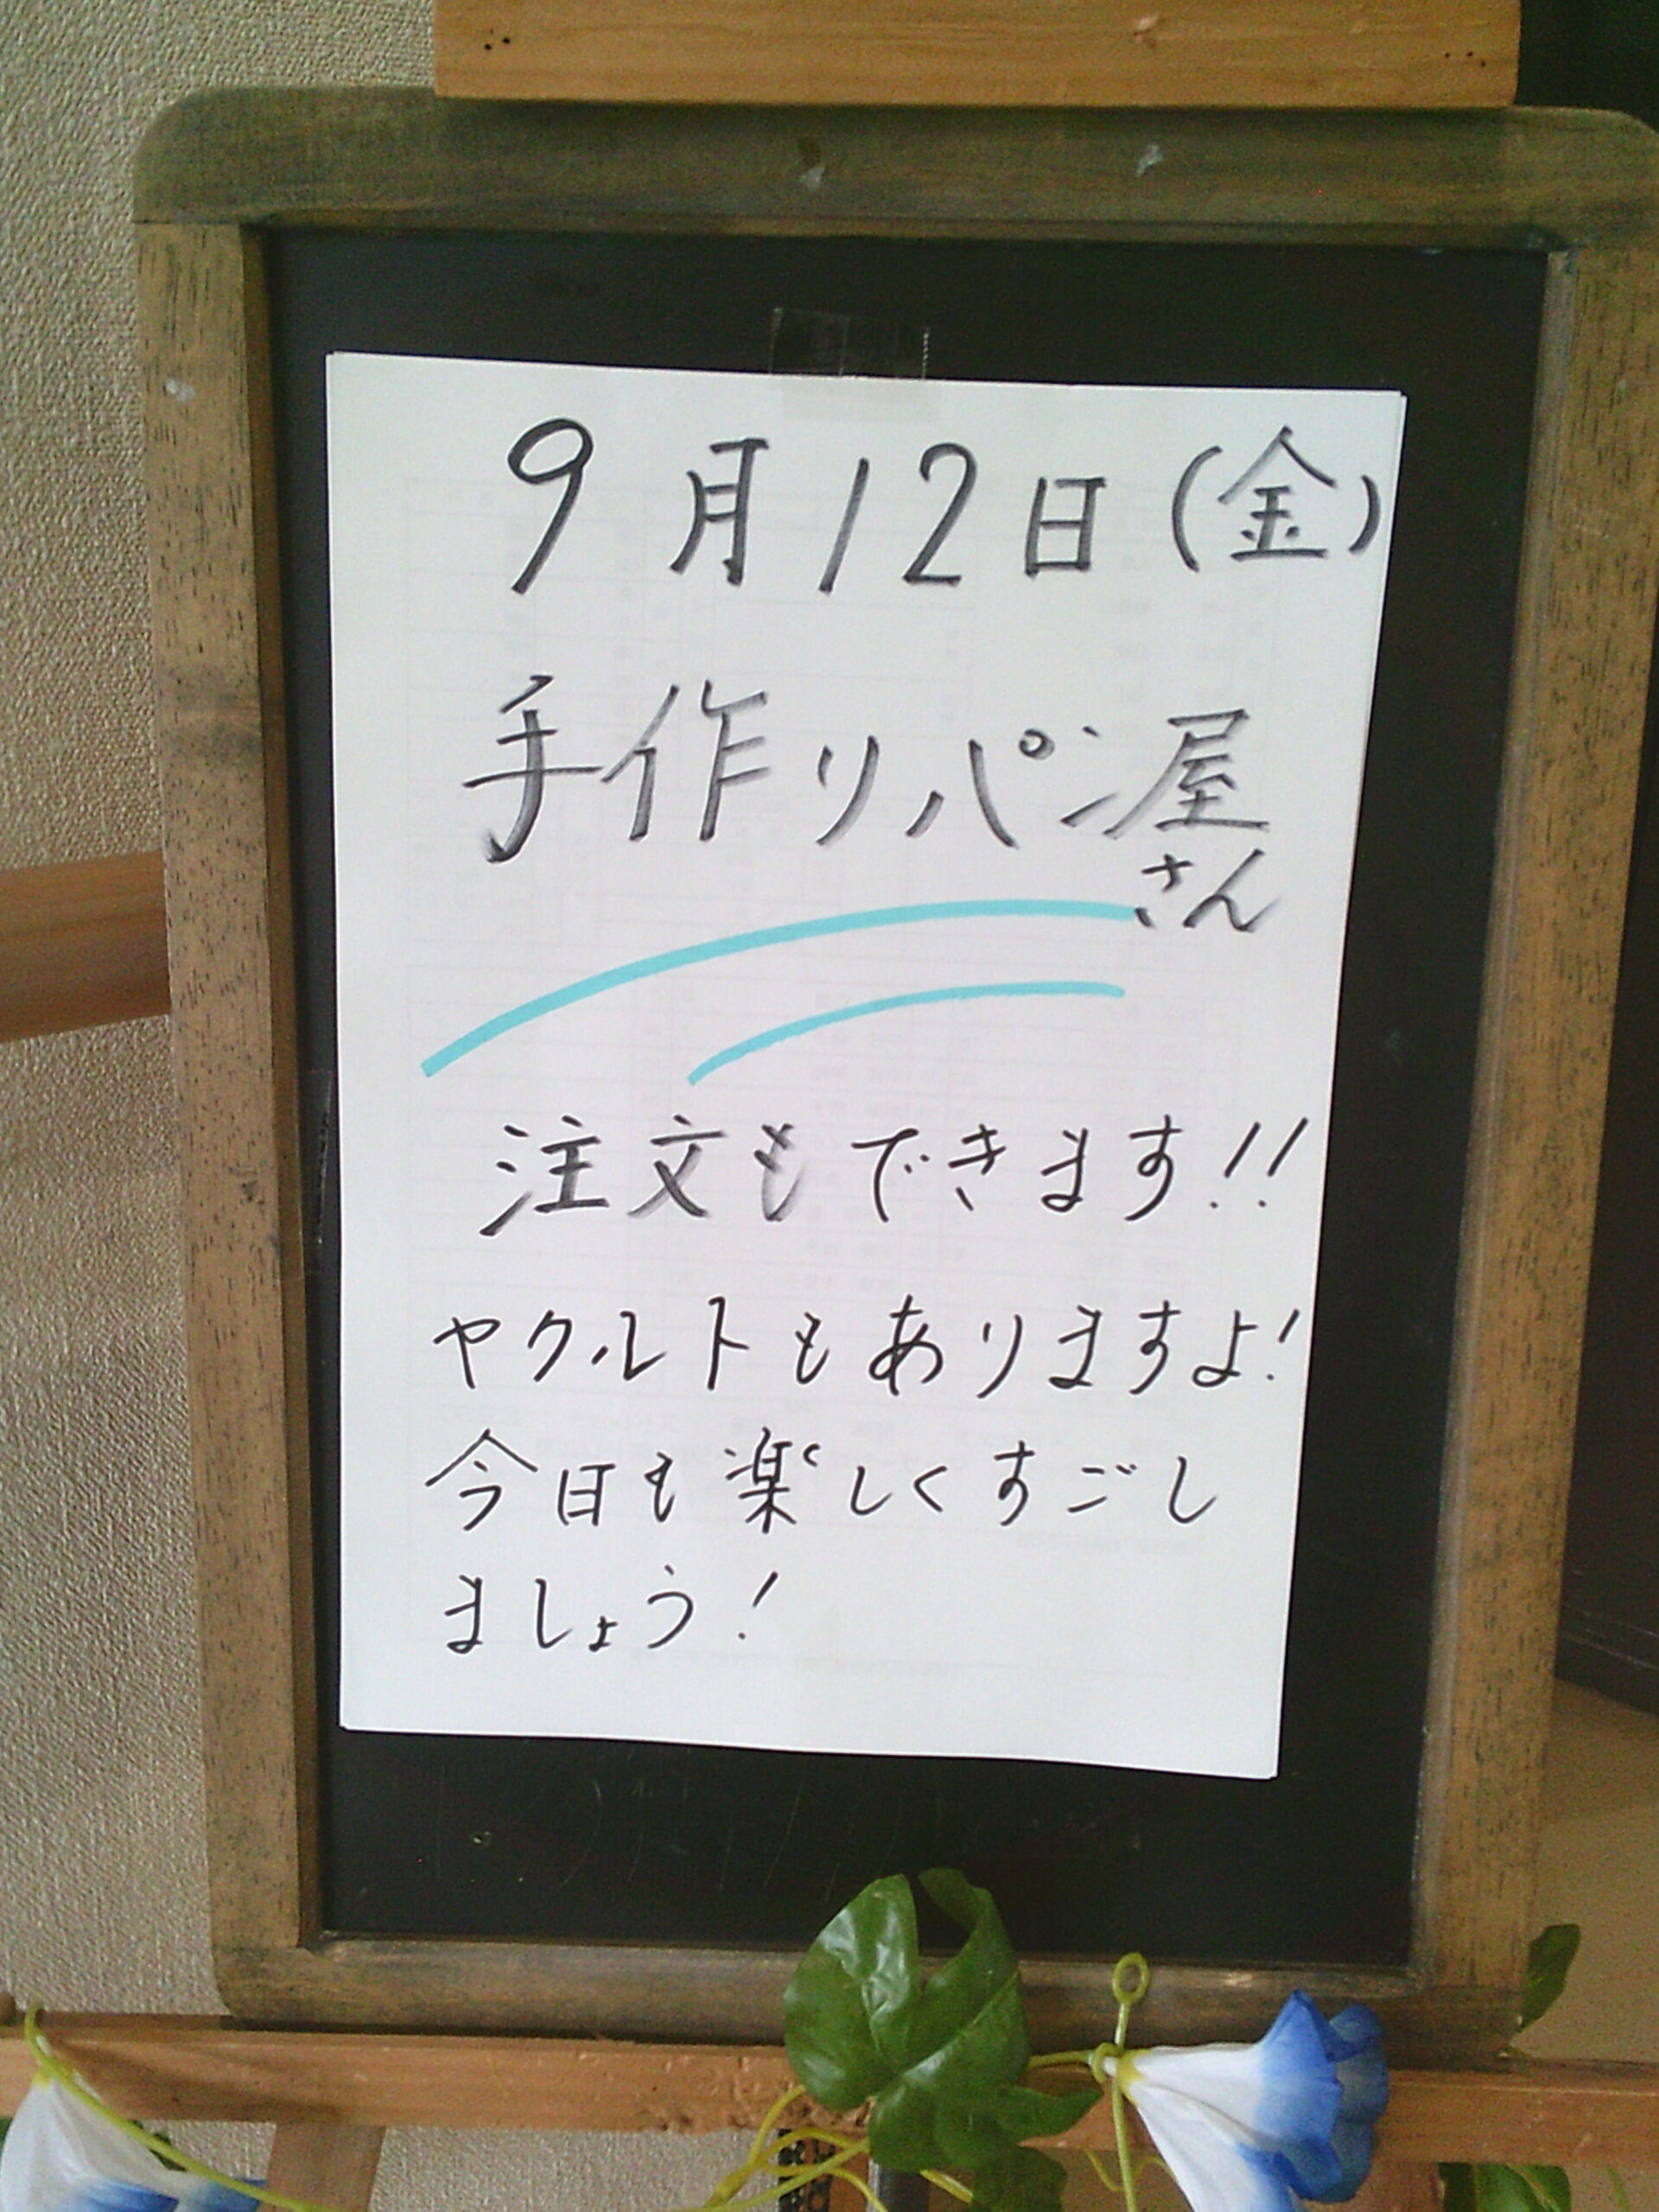 9月12日(金)
手作りパン屋
さん
注文もできます!!
ヤクルトもありますよ!
今日も楽しくすごし
ましょう!